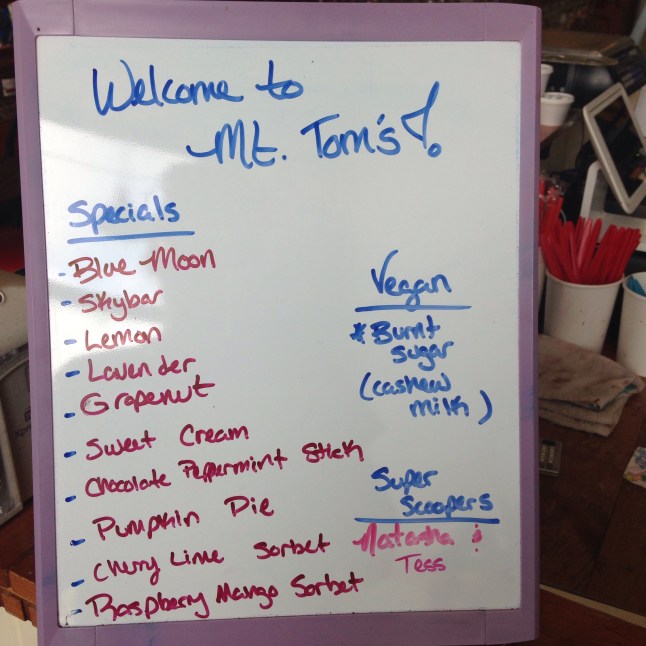 Welcome to
Mt. Tom's!
Specials
- Blue Moon
- Skybar
- Lemon
- Lavender
- Grapenut
- Sweet Cream
- Chocolate Peppermint Stick
- Pumpkin Pie
- Cherry Lime Sorbet
- Raspberry Mango Sorbet
Vegan
* Burnt
sugar
(cashew
milk)
Super
Scoopers
Natasha &
Tess